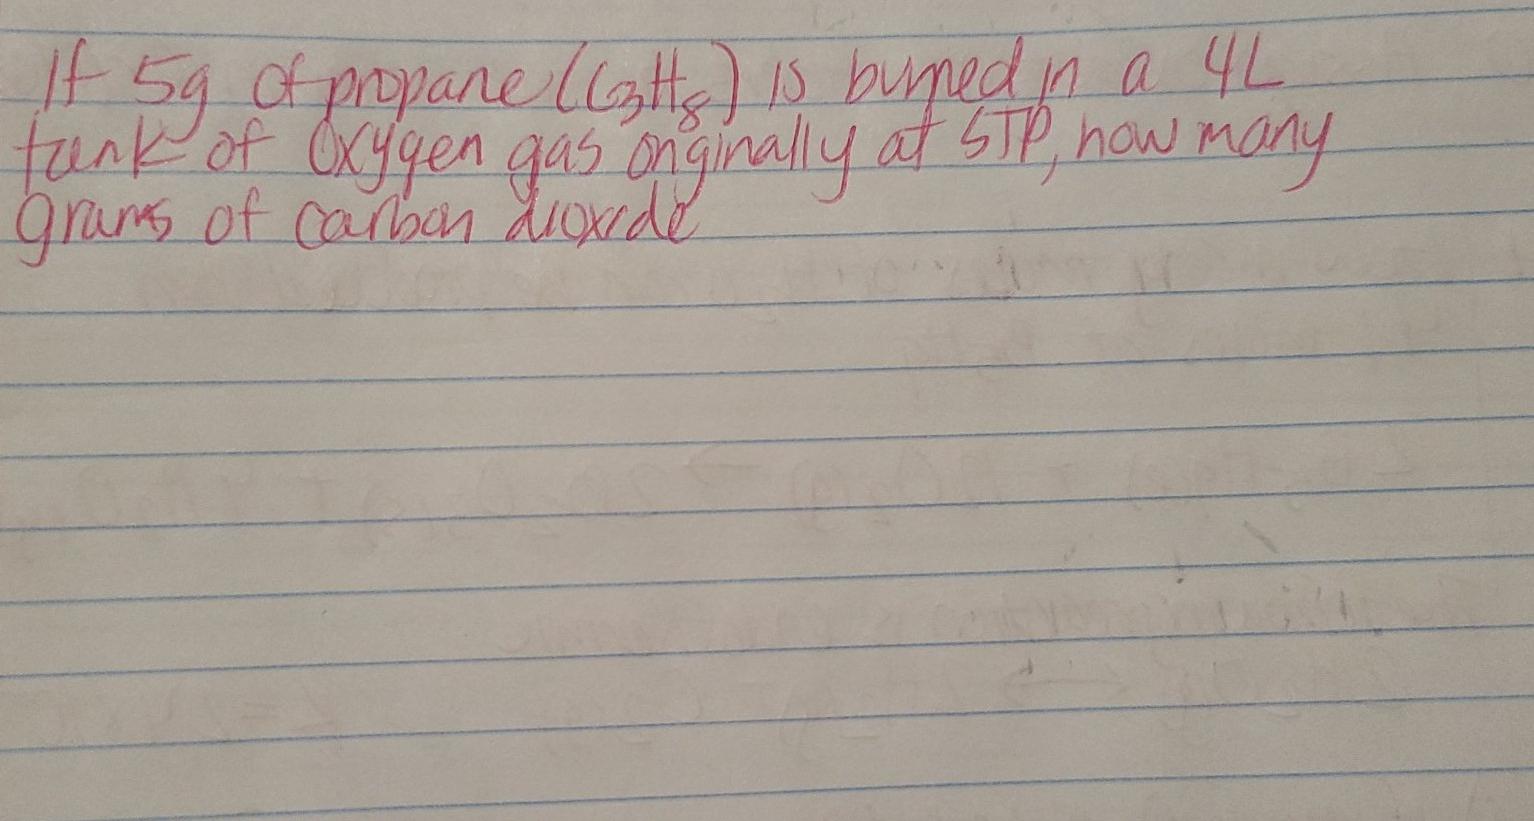 If 5g of propane (C3H8) is burned in a 4L
tank of oxygen gas originally at STP, how many
grams of carbon dioxide